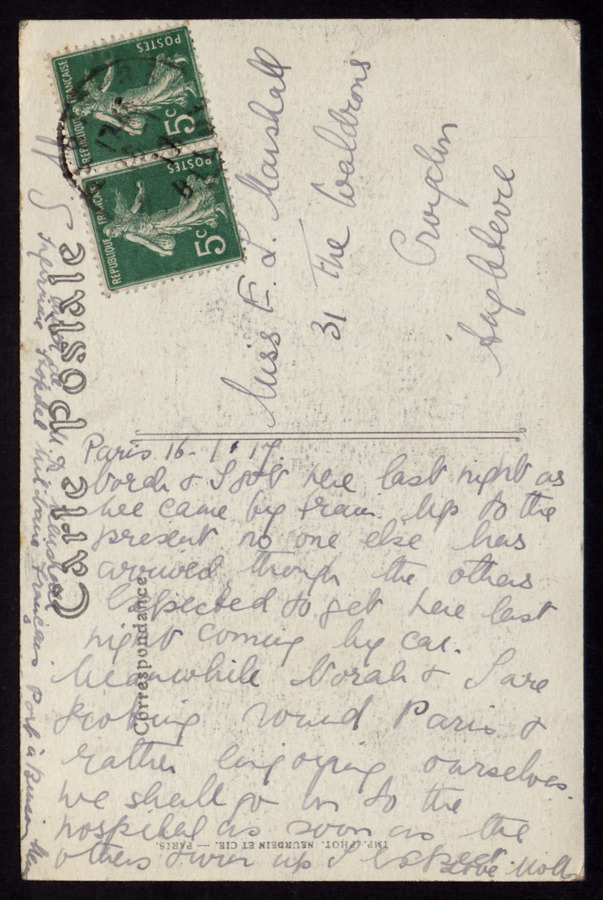 Carte postale
Correspondance
RÉPUBLIQUE FRANÇAISE
POSTES
5c
RÉPUBLIQUE FRANÇAISE
POSTES
5c
Miss E. L. Marshall
31 The Waldrons
Croydon
Angleterre
Paris 16-1-17.
Norah & I got here last night as
we came by train. Up to the
present no one else has
arrived though the others
expected to get here last
night coming by car.
Meanwhile Norah & I are
looking round Paris &
rather enjoying ourselves.
We shall go on to the
hospital as soon as the
others turn up I expect. Love Molly
Hopital militaire Français
IMP. PHOT. NEURDEIN ET CIE. — PARIS.